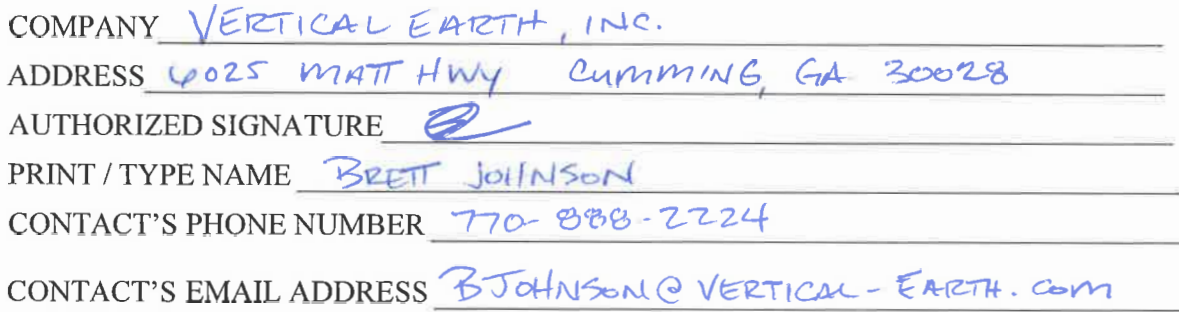 COMPANY VERTICAL EARTH, INC.
ADDRESS 6025 MATT HWY CUMMING, GA 30028
AUTHORIZED SIGNATURE
PRINT / TYPE NAME BRETT JOHNSON
CONTACT'S PHONE NUMBER 770-888-2224
CONTACT'S EMAIL ADDRESS BJOHNSON@VERTICAL-EARTH.COM